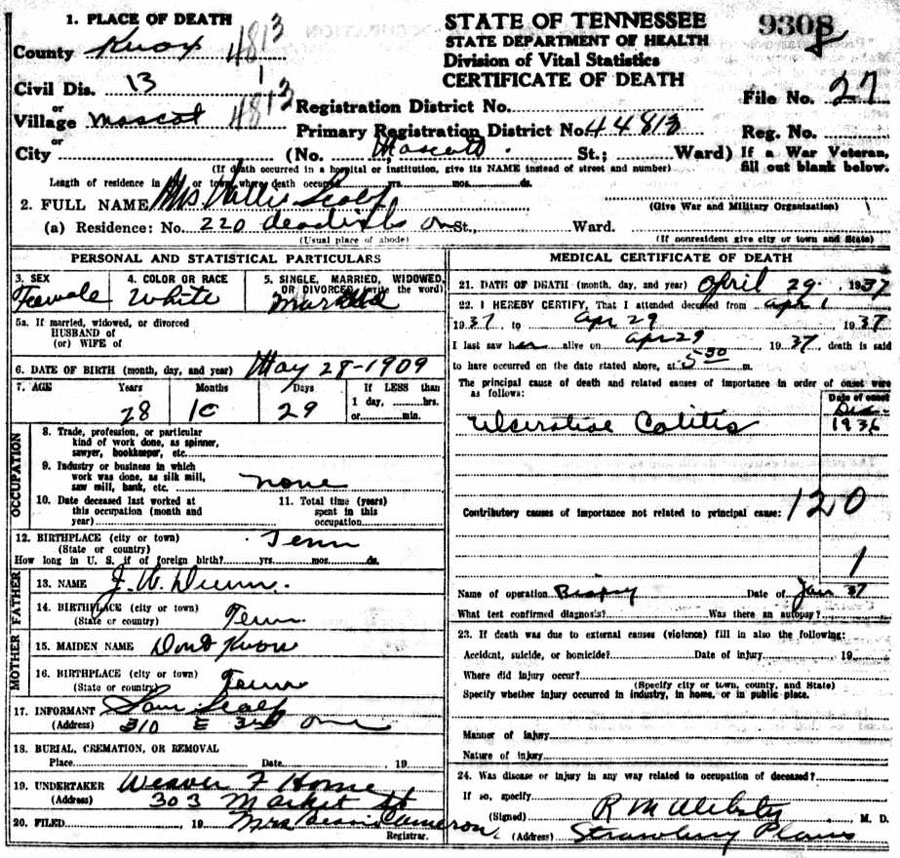 1. PLACE OF DEATH
County Knox 4813
Civil Dis. 13 1
or
Village Mascot 4813
or
City
STATE OF TENNESSEE
STATE DEPARTMENT OF HEALTH
Division of Vital Statistics
CERTIFICATE OF DEATH
9308
File No. 27
Registration District No.
Primary Registration District No. 44813
Reg. No.
(No. Mascott. St.; Ward)
If a War Veteran, fill out blank below.
(If death occurred in a hospital or institution, give its NAME instead of street and number)
Length of residence in city or town where death occurred yrs. mos. ds.
2. FULL NAME Mrs Scalf
(Give War and Military Organization)
(a) Residence: No. 220 St., Ward.
(Usual place of abode)
(If nonresident give city or town and State)
PERSONAL AND STATISTICAL PARTICULARS
3. SEX
Female
4. COLOR OR RACE
White
5. SINGLE, MARRIED, WIDOWED, OR DIVORCED (write the word)
Married
5a. If married, widowed, or divorced
HUSBAND of
(or) WIFE of
6. DATE OF BIRTH (month, day, and year) May 28-1909
7. AGE Years Months Days If LESS than
1 day, hrs.
or min.
28 10 29
OCCUPATION
8. Trade, profession, or particular
kind of work done, as spinner,
sawyer, bookkeeper, etc.
9. Industry or business in which
work was done, as silk mill,
saw mill, bank, etc. none
10. Date deceased last worked at
this occupation (month and
year)
11. Total time (years)
spent in this
occupation
12. BIRTHPLACE (city or town) Tenn
(State or country)
How long in U. S. if of foreign birth? yrs. mos. ds.
FATHER
13. NAME J. W. Dunn.
14. BIRTHPLACE (city or town)
(State or country) Tenn
MOTHER
15. MAIDEN NAME Dont Know
16. BIRTHPLACE (city or town)
(State or country) Tenn
17. INFORMANT Sam Scalf
(Address) 310 E 3rd
18. BURIAL, CREMATION, OR REMOVAL
Place Date 19
19. UNDERTAKER Weaver F Home
(Address) 303 Market St
20. FILED 19 Mrs Bessie Cameron
Registrar.
MEDICAL CERTIFICATE OF DEATH
21. DATE OF DEATH (month, day, and year) April 29. 1937
22. I HEREBY CERTIFY, That I attended deceased from Apr 1
1937, to Apr 29 1937
I last saw her alive on Apr 29 1937, death is said
to have occurred on the date stated above, at 5 30 m.
The principal cause of death and related causes of importance in order of onset were
as follows:
Date of onset
Dec-
1936
Ulcerative Colitis
Contributory causes of importance not related to principal cause: 120
1
Name of operation Biopsy Date of Jan 37
What test confirmed diagnosis? Was there an autopsy?
23. If death was due to external causes (violence) fill in also the following:
Accident, suicide, or homicide? Date of injury 19
Where did injury occur?
(Specify city or town, county, and State)
Specify whether injury occurred in industry, in home, or in public place.
Manner of injury
Nature of injury
24. Was disease or injury in any way related to occupation of deceased?
If so, specify
(Signed) R M M. D.
(Address) Strawberry Plains